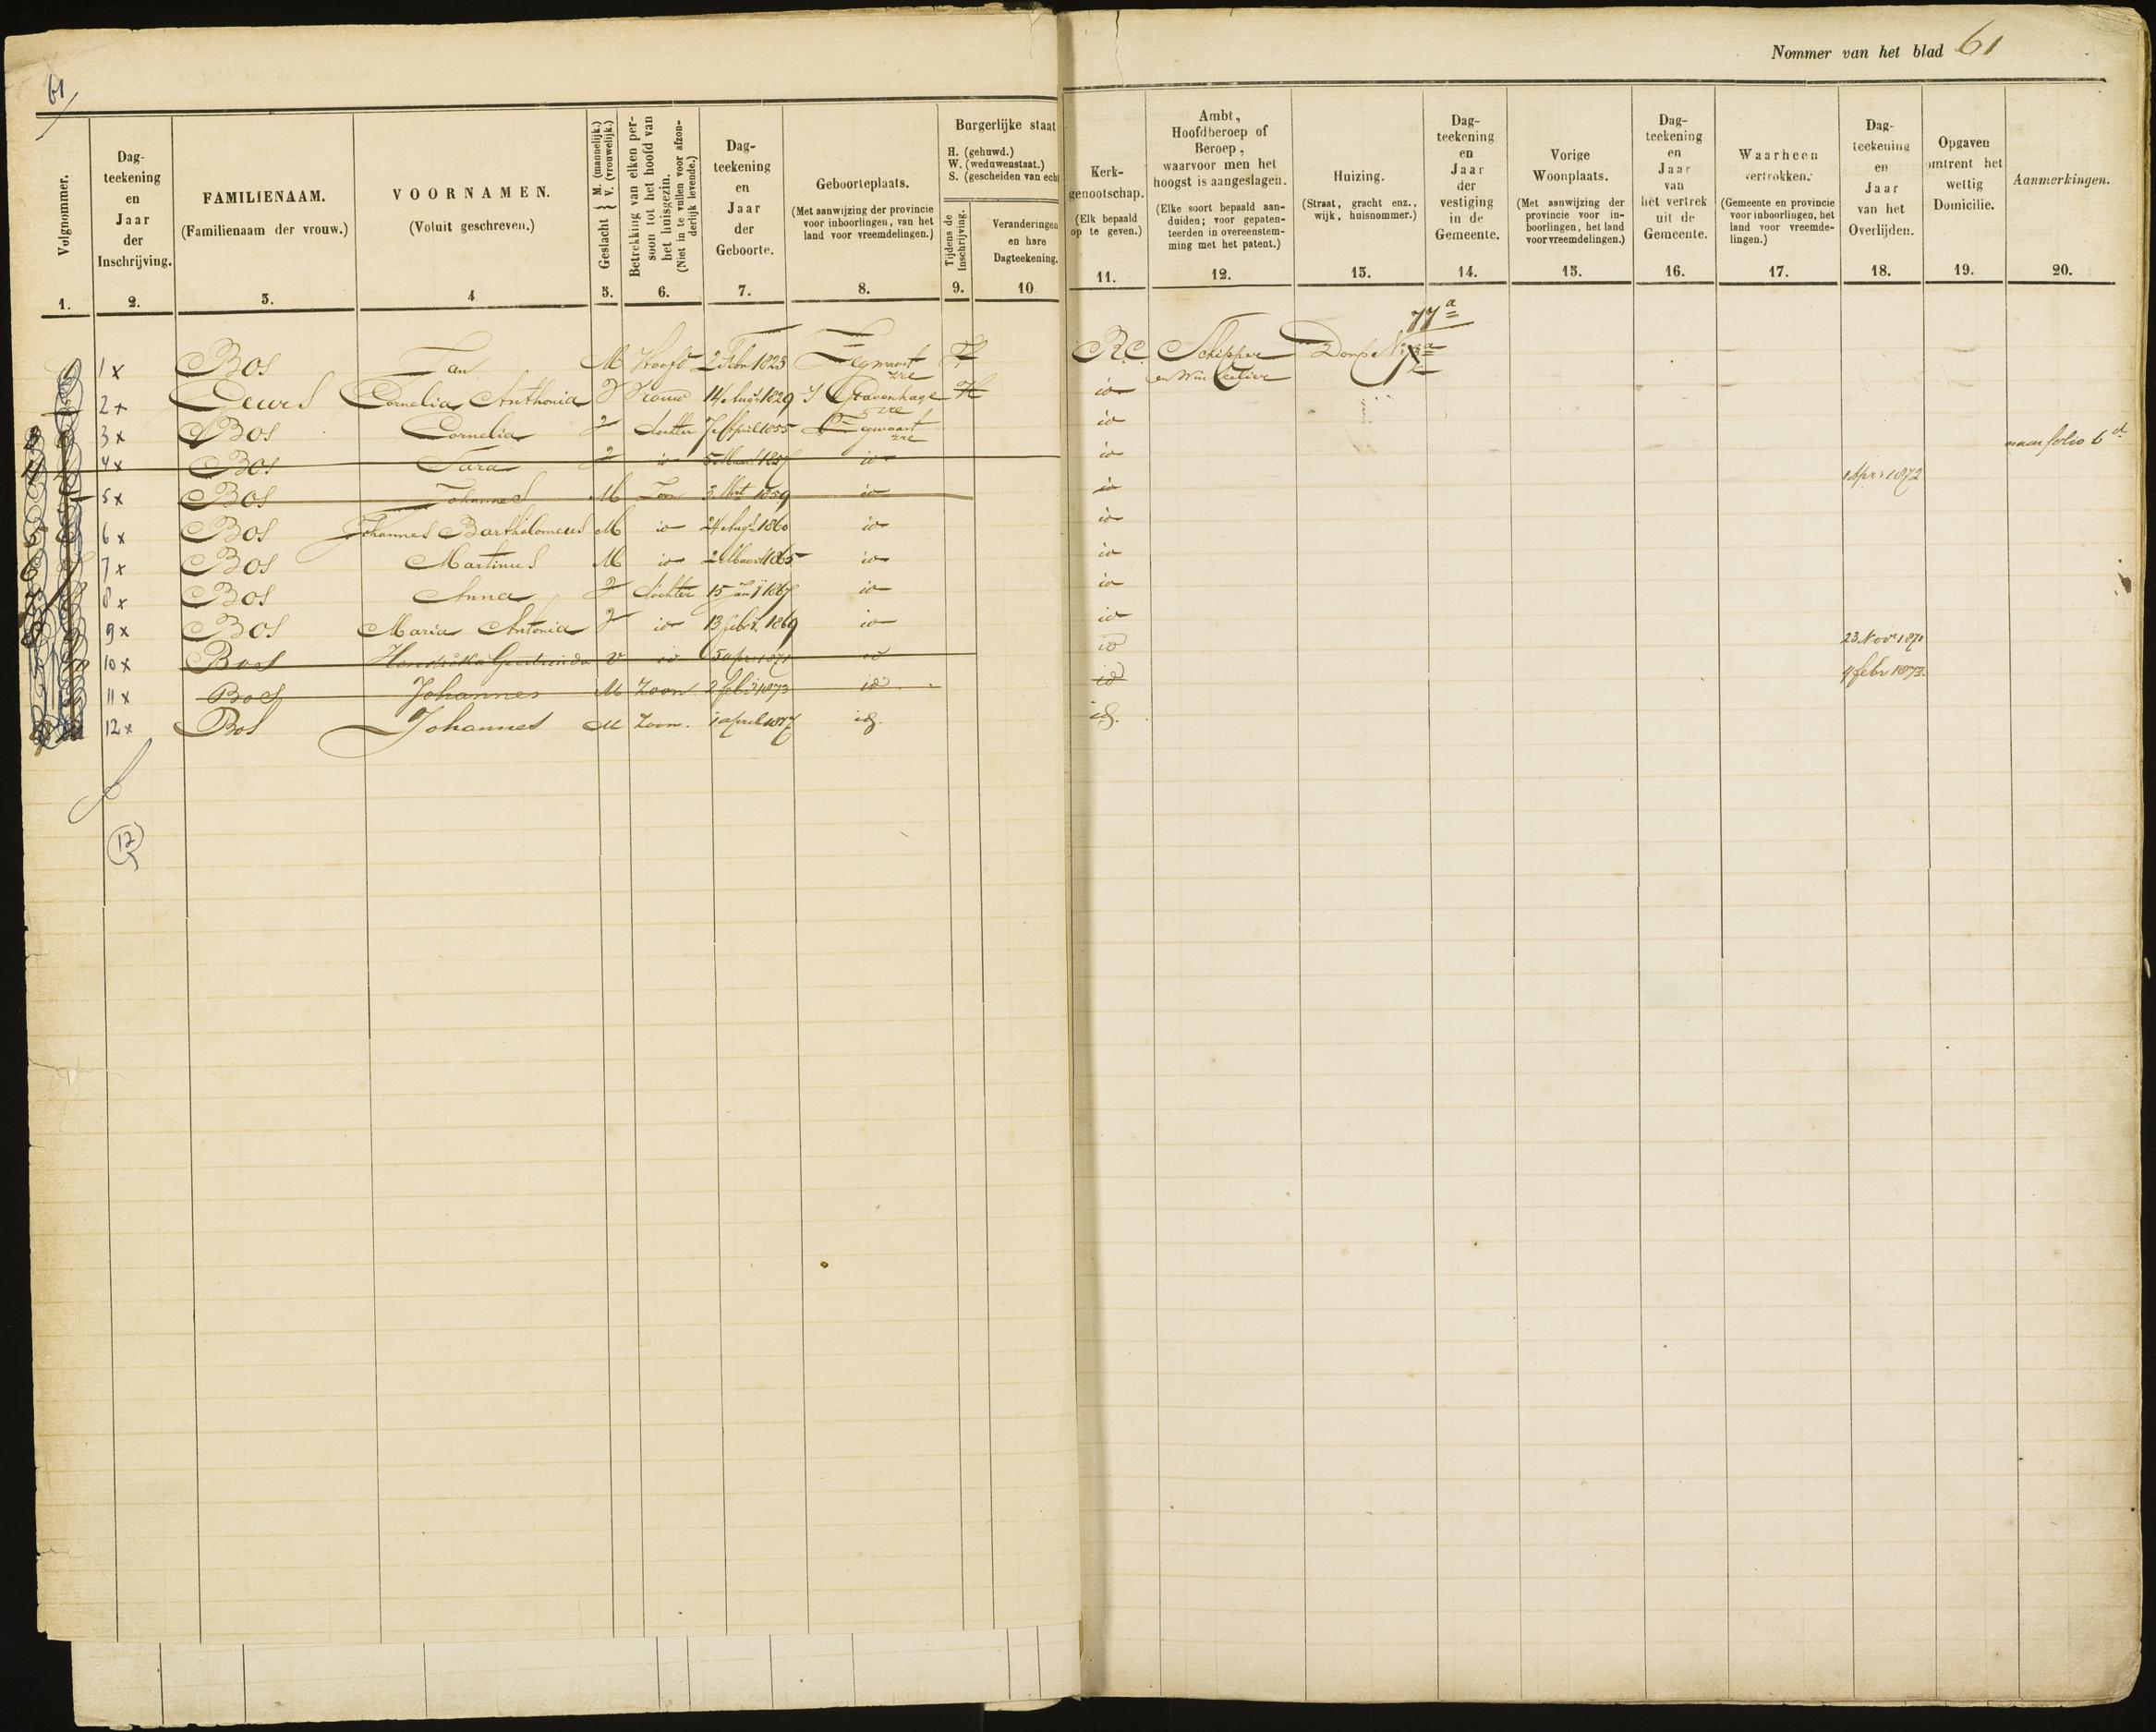 61
Nommer van het blad 61
Volgnommer.
1.
Dag-
teekening
en
Jaar
der
Inschrijving.
2.
FAMILIENAAM.
(Familienaam der vrouw.)
3.
VOORNAMEN.
(Voluit geschreven.)
4
Geslacht } M. (mannelijk.) V. (vrouwelijk.)
5.
Betrekking van elken per-
soon tot het hoofd van
het huisgezin.
(Niet in te vullen voor afzon-
derlijk levende.)
6.
Dag-
teekening
en
Jaar
der
Geboorte.
7.
Geboorteplaats.
(Met aanwijzing der provincie
voor inboorlingen, van het
land voor vreemdelingen.)
8.
Burgerlijke staat
H. (gehuwd.)
W. (weduwenstaat.)
S. (gescheiden van echt
Tijdens de
Inschrijving.
9.
Veranderingen
en hare
Dagteekening.
10
Kerk-
genootschap.
(Elk bepaald
op te geven.)
11.
Ambt,
Hoofdberoep of
Beroep,
waarvoor men het
hoogst is aangeslagen.
(Elke soort bepaald aan-
duiden; voor gepaten-
teerden in overeenstem-
ming met het patent.)
12.
Huizing.
(Straat, gracht enz.,
wijk, huisnommer.)
13.
Dag-
teekening
en
Jaar
der
vestiging
in de
Gemeente.
14.
Vorige
Woonplaats.
(Met aanwijzing der
provincie voor in-
boorlingen, het land
voor vreemdelingen.)
15.
Dag-
teekening
en
Jaar
van
het vertrek
uit de
Gemeente.
16.
Waarheen
vertrokken.
(Gemeente en provincie
voor inboorlingen, het
land voor vreemde-
lingen.)
17.
Dag-
teekening
en
Jaar
van het
Overlijden.
18.
Opgaven
omtrent het
wettig
Domicilie.
19.
Aanmerkingen.
20.
77a
1 x Bos Jan M Hoofd 2 Febr 1823 Zegwaart H RC Schipper Dorp No
zre en Winkelier
2 x Geurs Cornelia Anthonia V Vrouw 14 Augt 1829 S Gravenhage H io
zre
3 x Bos Cornelia V dochter 7 April 1855 Zegwaart io
zre
4 x Bos Sara V io 5 Maart 1857 io io naar folio 6d
5 x Bos Johannes M Zoon 3 1859 io io 1 Apr 1872
6 x Bos Johannes Bartholomeus M io 24 Augt 1860 io io
7 x Bos Martinus M io 2 Maart 1865 io io
8 x Bos Anna V dochter 15 Jan 1867 io io
9 x Bos Maria Antonia V io 13 febr. 1869 io io
10 x Bos Hendrika Geertruida V id 5 apr 1871 id id 23 Nov 1871
11 x Bos Johannes M Zoon 2 febr 1873 id id 4 febr 1873.
12 x Bos Johannes M Zoon. 1 april 1877 id. id.
12